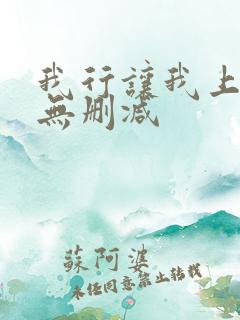 我行讓我上
無刪减
蘇阿婆
未任同意禁止转载